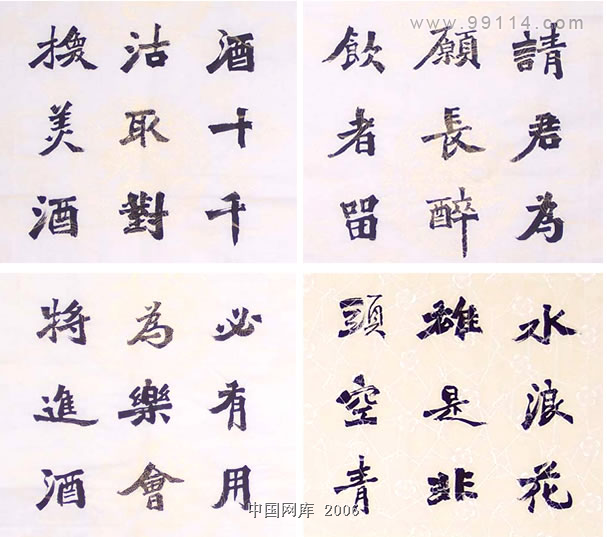 酒十千
沽取對
換美酒
www.99114.com
請君為
願長醉
飲者留
必有用
為樂會
將進酒
水浪花
雄是非
頭空青
中国网库 2006